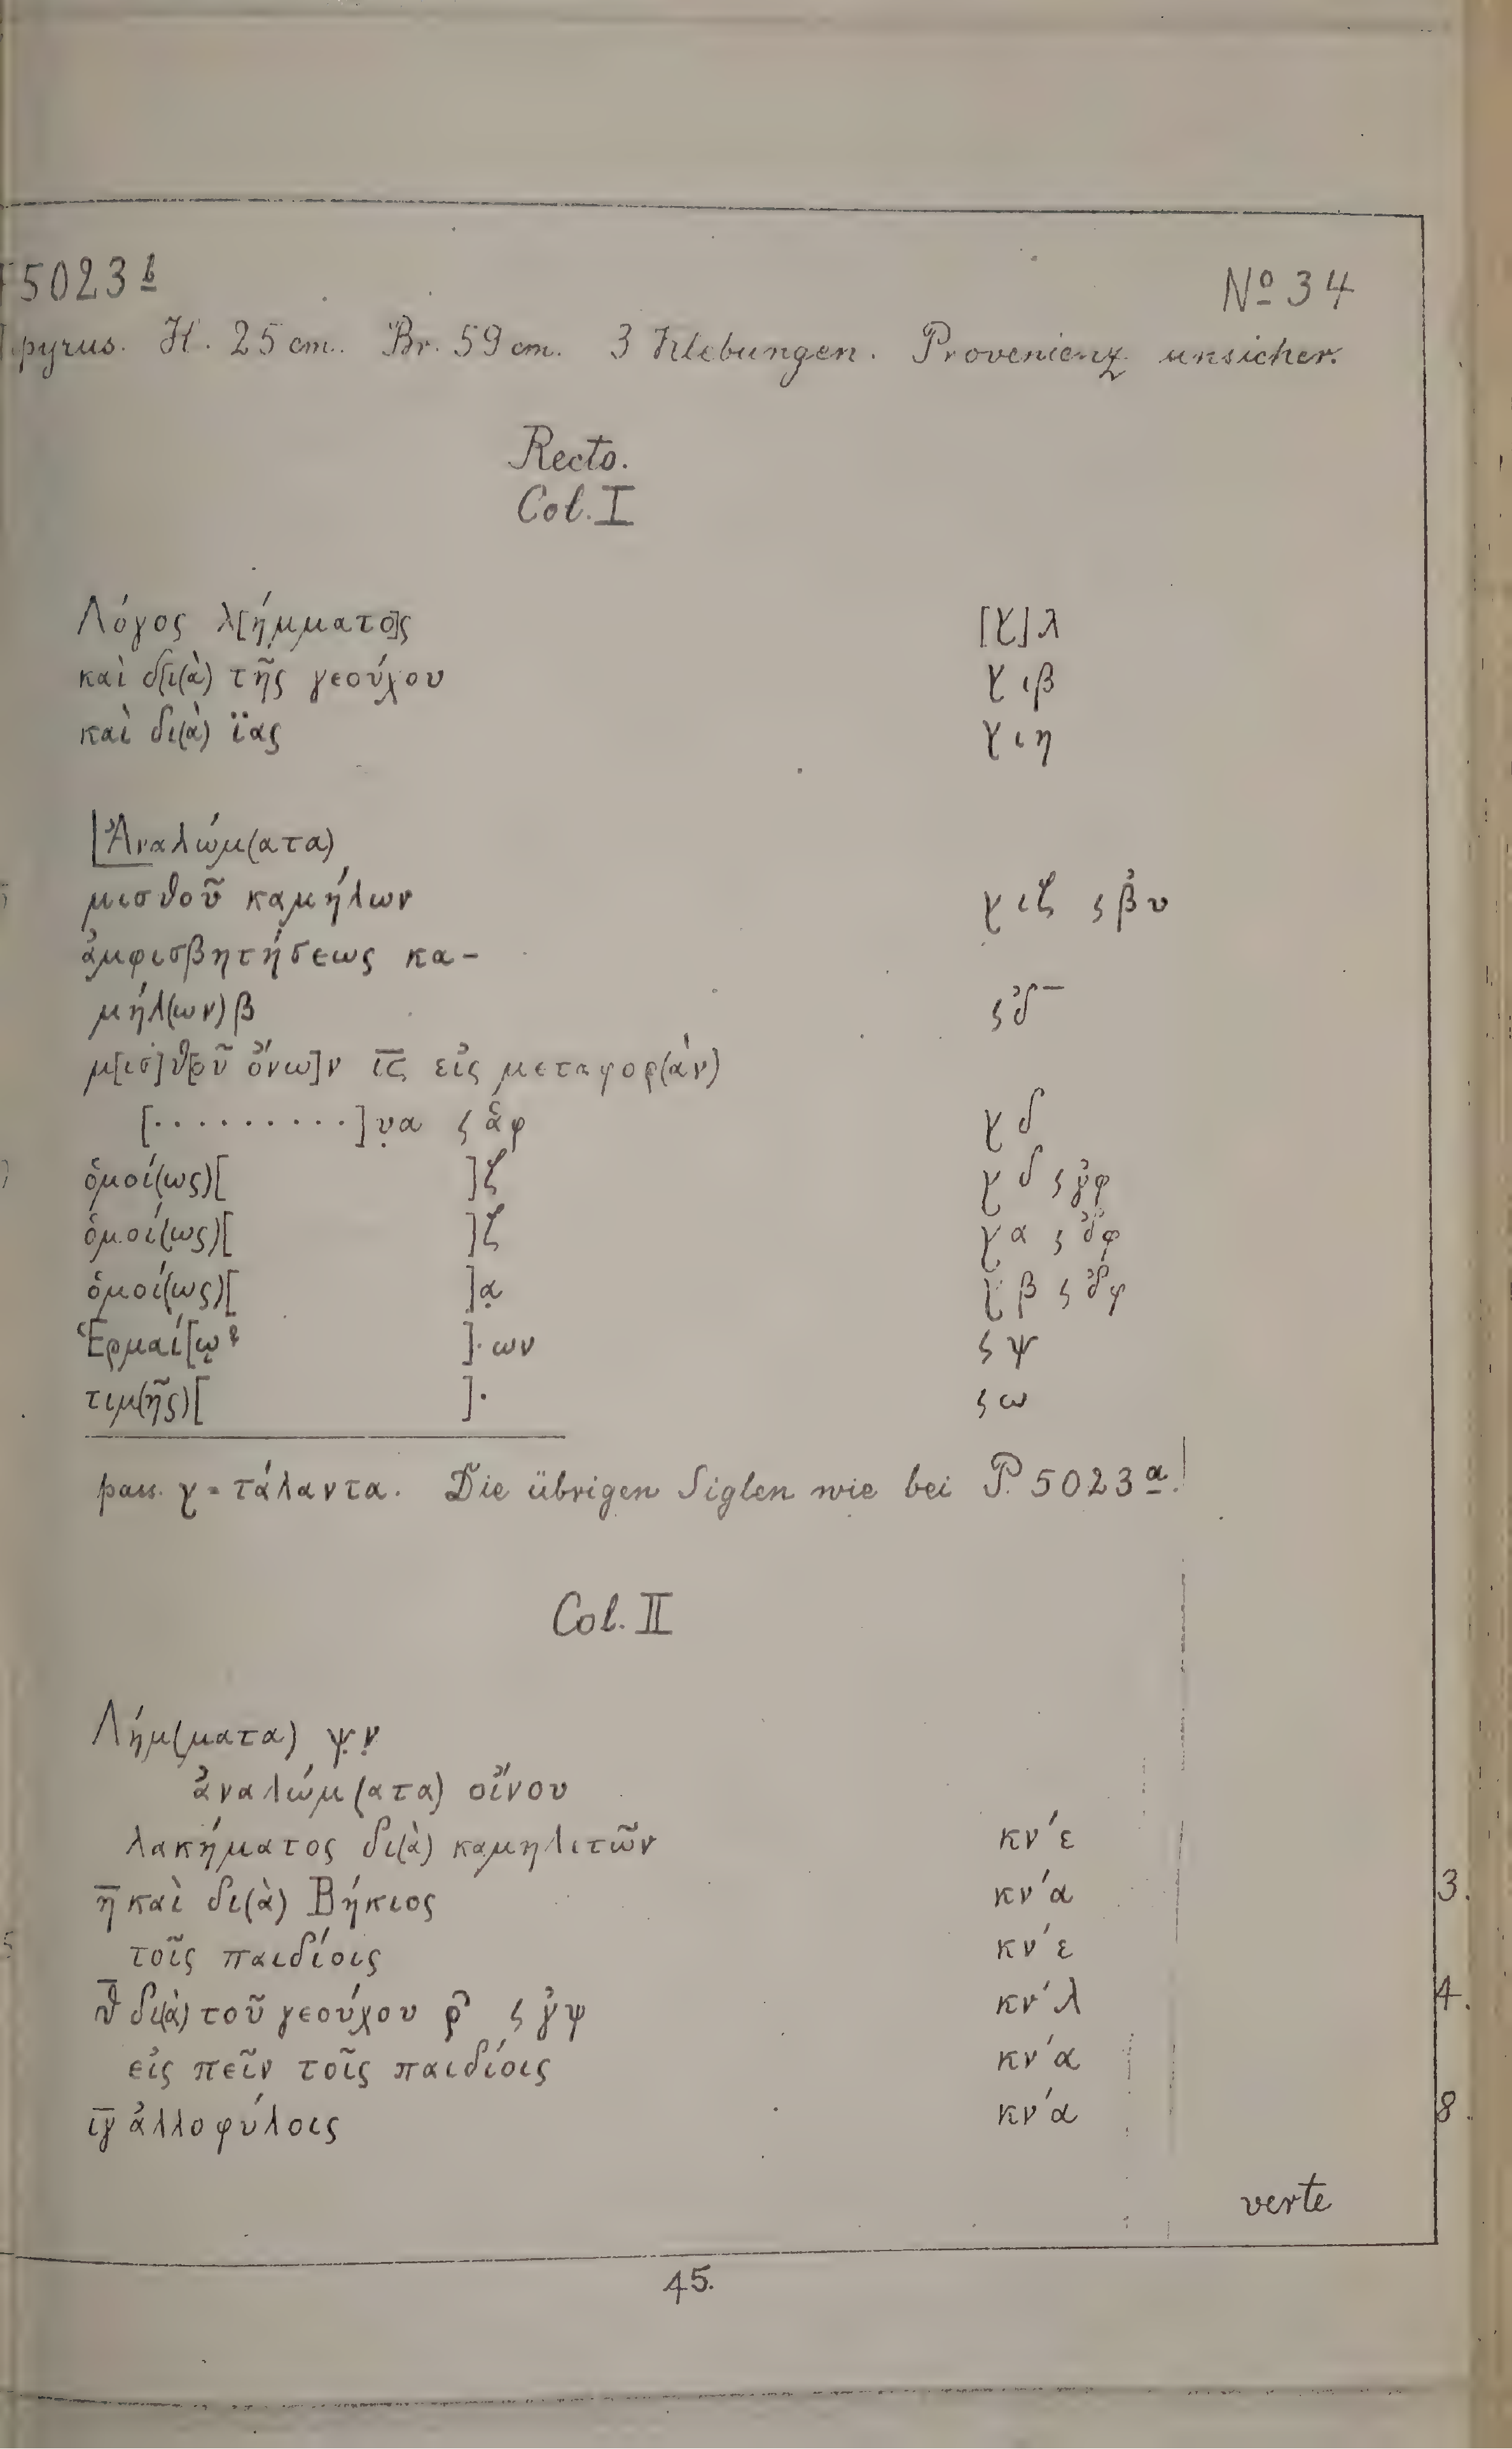 5023 b
No 34
pyrus. H. 25 cm. Br. 59 cm. 3 Klebungen. Provenienz unsicher.
Recto.
Col. I
Λόγος λ[ήμματο]ς [γ]λ
καὶ δ[ι(ὰ) τῆς γεούχου γ ιβ
καὶ δι(ὰ) ϊας γ ιη
Ἀναλώμ(ατα)
μισθοῦ καμήλων γ ιζ ς β̓υ
ἀμφισβητήσεως κα-
μήλ(ων) β ς δ̓ –
μ[ισ]θ[οῦ ὄνω]ν ι̅ς̅ εἰς μεταφορ(ὰν)
[..........]υα ς ἀφ γ δ
ὁμοί(ως)[ ]ζ γ δ ς γ̓φ
ὁμοί(ως)[ ]ζ γ α ς δ̓φ
ὁμοί(ως)[ ]α γ β ς δ̓φ
Ἑρμαί[ῳ ? ]. ων ς ψ
τιμ(ῆς)[ ]. ς ω
pass. γ = τάλαντα. Die übrigen Siglen wie bei P. 5023 a!
Col. II
Λήμ(ματα) ψν
ἀναλώμ(ατα) οἴνου
λακήματος δι(ὰ) καμηλιτῶν κν´ε
η̅ καὶ δι(ὰ) Βήκιος κν´α 3.
5 τοῖς παιδίοις κν´ε
θ̅ δι(ὰ) τοῦ γεούχου ρ̑ ς γ̓ψ κν´λ 4.
εἰς πεῖν τοῖς παιδίοις κν´α
ι̅γ̅ ἀλλοφύλοις κν´α 8.
verte
45.